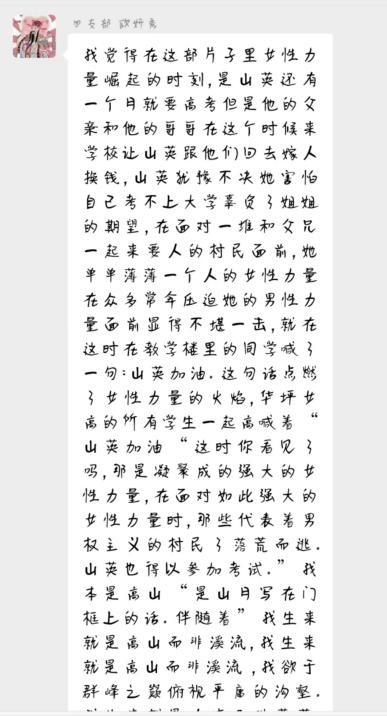 我觉得在这部片子里女性力
量崛起的时刻,是山英还有
一个月就要高考但是他的父
亲和他的哥哥在这个时候来
学校让山英跟他们回去嫁人
换钱,山英犹豫不决她害怕
自己考不上大学辜负了姐姐
的期望,在面对一堆和父兄
一起来要人的村民面前,她
单单薄薄一个人的女性力量
在众多常年压迫她的男性力
量面前显得不堪一击,就在
这时在教学楼里的同学喊了
一句:山英加油.这句话点燃
了女性力量的火焰,华坪女
高的所有学生一起高喊着“
山英加油“这时你看见了
吗,那是凝聚成的强大的女
性力量,在面对如此强大的
女性力量时,那些代表着男
权主义的村民了落荒而逃.
山英也得以参加考试.”我
本是高山“是山月写在门
框上的话.伴随着”我生来
就是高山而非溪流,我生来
就是高山而非溪流,我欲于
群峰之巅俯视平庸的沟壑.